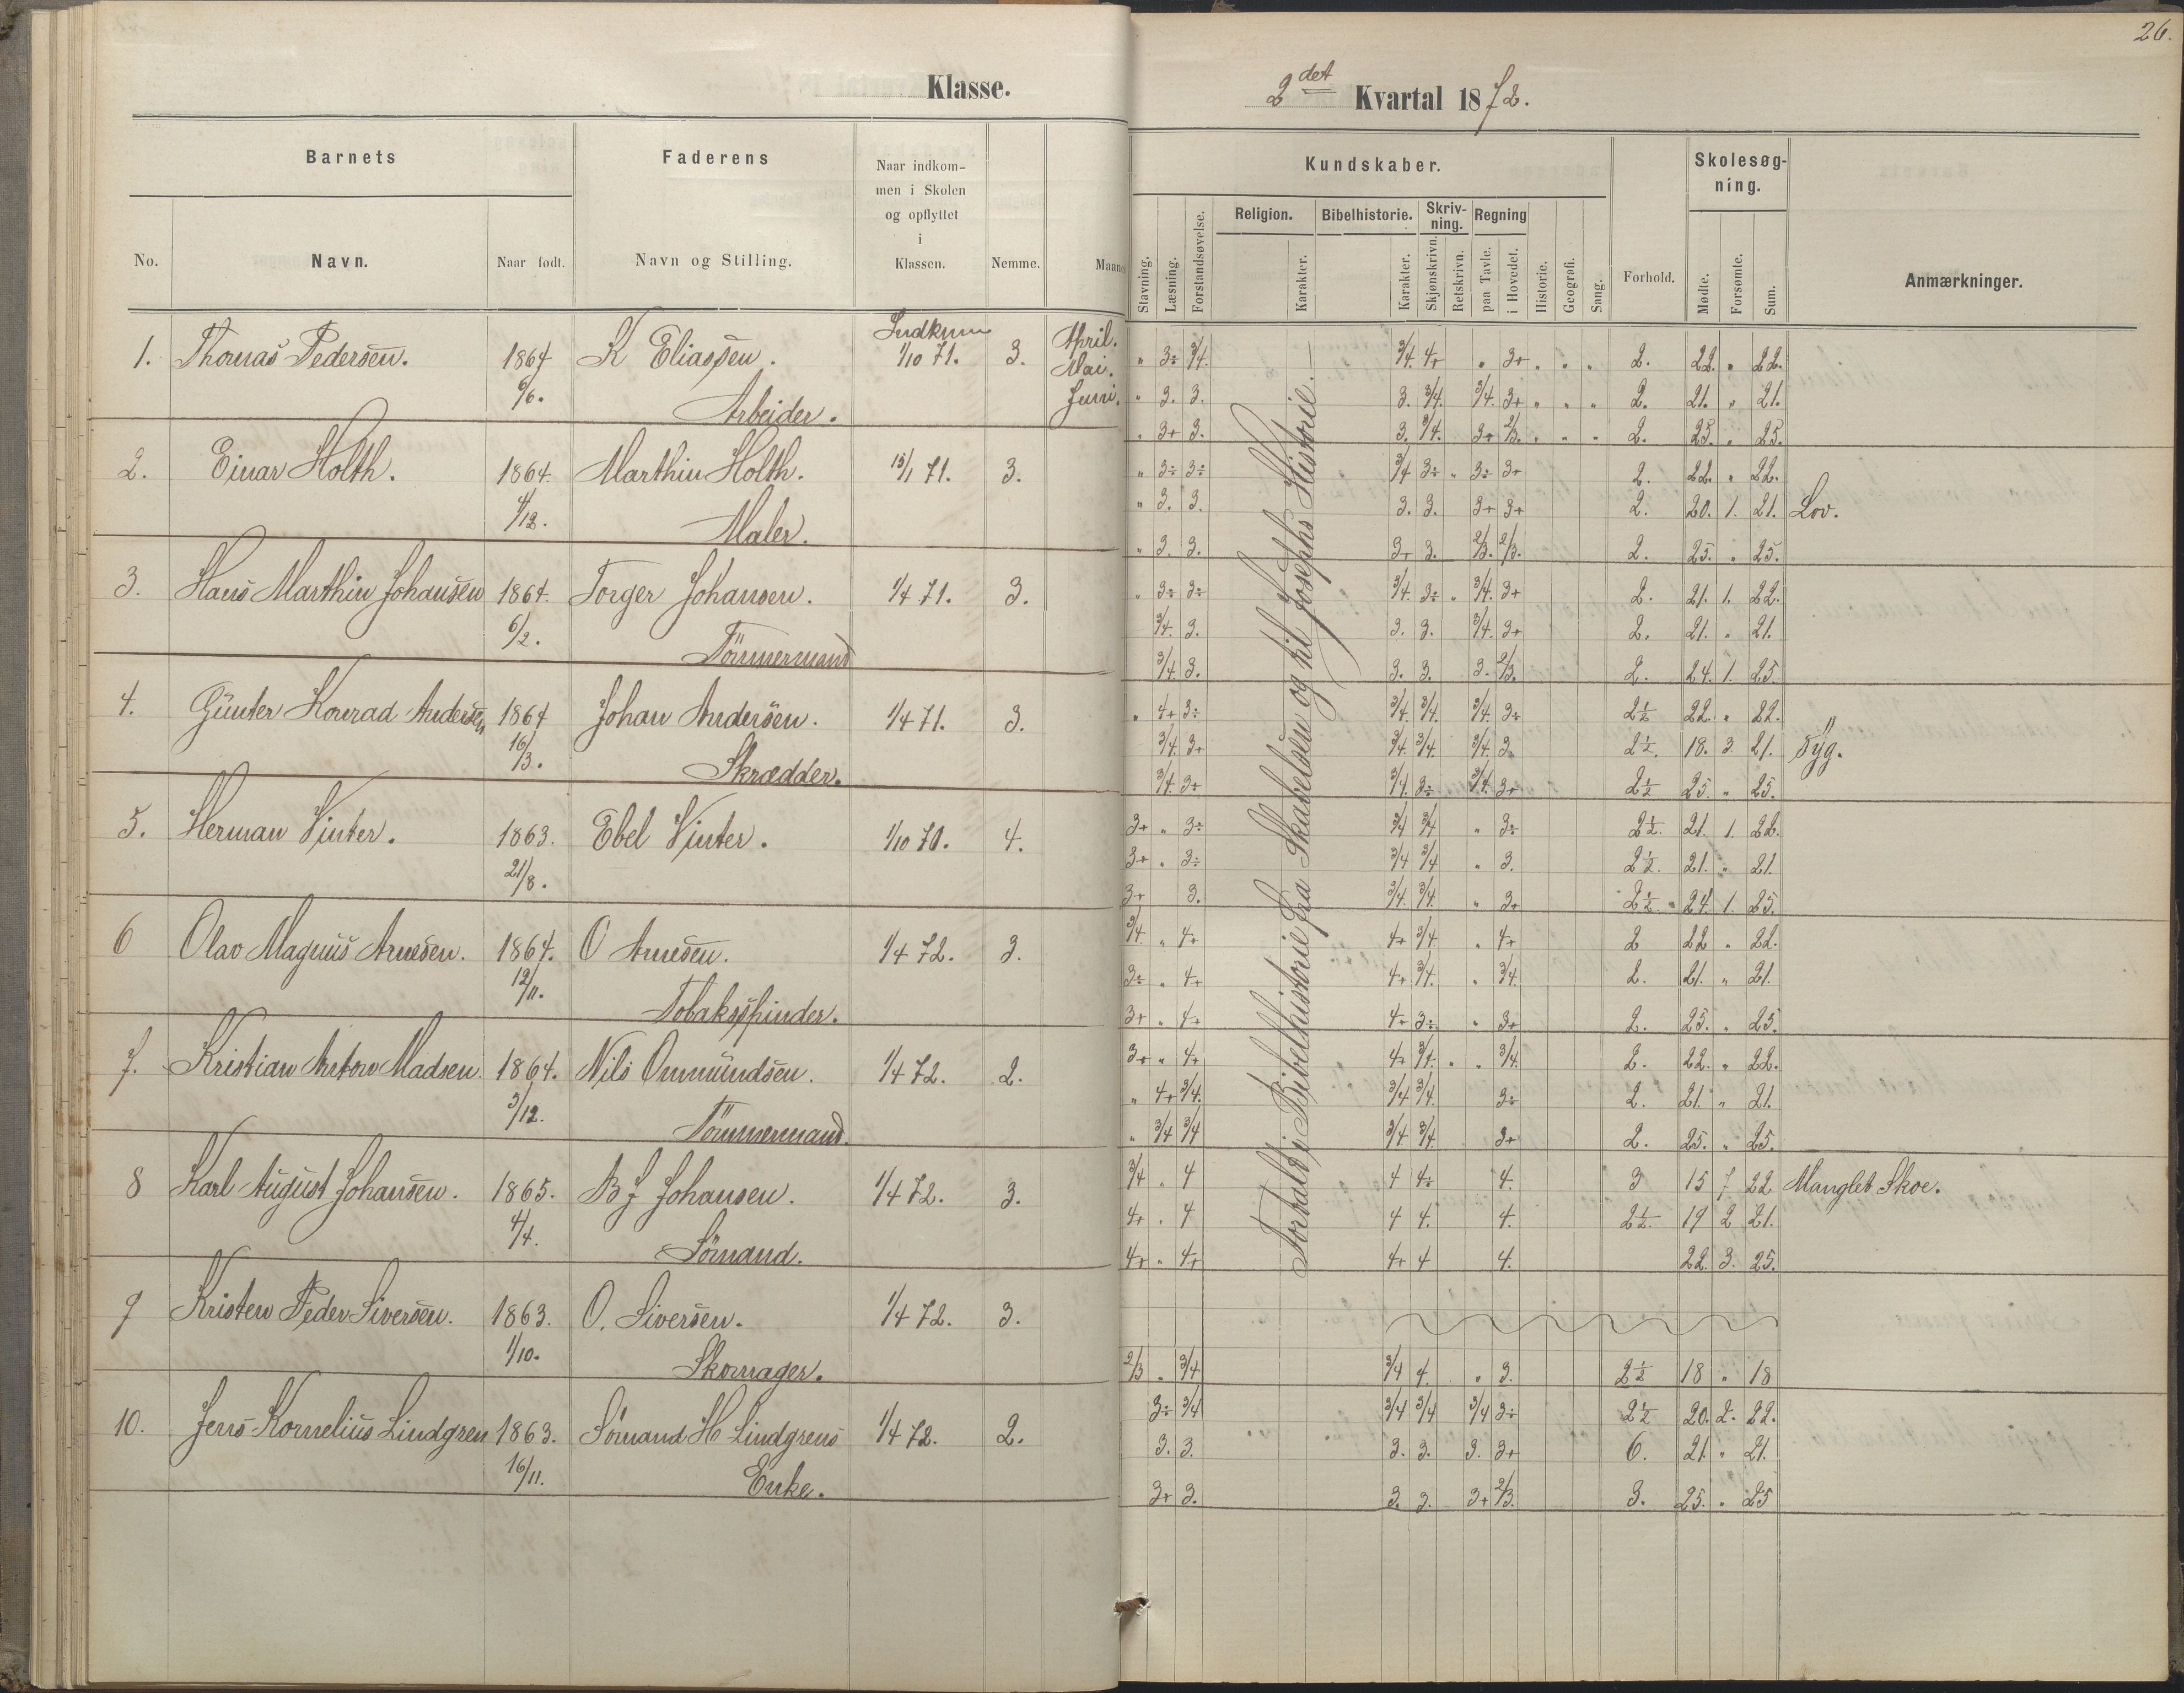 26.
Klasse.
2det Kvartal 1872.
Barnets
Faderens
Naar indkom-
men i Skolen
og opflyttet
i
Klassen.
Kundskaber.
Skolesøg-
ning.
Religion. Bibelhistorie. Skriv-
ning. Regning
No. Navn. Naar født. Navn og Stilling. Nemme. Maaned
Stavning. Læsning. Forstandsøvelse. Karakter. Karakter. Skjønskrivn. Retskrivn. paa Tavle. i Hovedet. Historie. Geografi. Sang. Forhold. Mødte. Forsømte. Sum. Anmærkninger.
Fortalt i Bibelhistorie fra Skabelsen og til Josephs Historie.
Indkom
1. Thomas Pedersen. 1864 K Eliassen. 1/10 71. 3. April. " 3÷ 3/4. 3/4. 4+ " 3+ " " " 2. 22. " 22.
9/6. Arbeider. Mai. " 3. 3. 3. 3/4. 3/4. 3+ " " " 2. 21. " 21.
Juni. " 3+ 3. 3. 3/4. 3+ 2/3. " " " 2. 25. " 25.
2. Einar Holth. 1864. Marthin Holth. 15/1 71. 3. " 3÷ 3÷ 3/4 3÷ " 3÷ 3+ 2. 22. " 22.
4/12. Maler. " 3. 3. 3. 3. 3+ 3+ 2. 20. 1. 21. Lov.
" 3. 3. 3+ 3. 2/3. 2/3. 2. 25. " 25.
3. Hans Marthin Johansen 1864. Torger Johansen. 1/4 71. 3. " 3÷ 3÷ 3/4. 3÷ " 3/4. 3+ 2. 21. 1. 22.
6/2. Tömmermand 3/4. 3. 3. 3. 3/4. 3+ 2. 21. " 21.
3/4. 3. 3. 3. 3. 2/3. 2. 24. 1. 25.
4. Günter Konrad Andersen 1864 Johan Andersen. 1/4 71. 3. " 4+ 3÷ 3/4. 3/4. 3/4. 3÷ 2½ 22. " 22.
16/3. Skrædder. 3/4. 3+ 3/4. 3/4. 3/4. 3. 2½. 18. 3 21. Syg.
3/4. 3+ 3/4. 3÷ 3/4. 3+ 2½ 25. " 25.
5. Herman Vinter. 1863. Ebel Vinter. 1/10 70. 4. 3+ " 3÷ 3/4 3/4 " 3÷ 2½. 21. 1. 22.
21/8. 3+ " 3÷ 3/4 3/4 " 3. 2½. 21. " 21.
3+ 3. 3/4. 3/4. " 3+ 2½. 24. 1. 25.
6 Olav Magnus Arnesen. 1864. O Arnesen. 1/4 72. 3. 3/4. " 4+ 4+ 3/4. " 4+ 2 22 " 22.
12/11. Tobaksspinder. 3÷ " 4+ 4+ 3/4. " 3/4. 2. 21. " 21.
3+ " 4+ 4+ 3÷ " 3+ 2. 25. " 25.
7. Kristian Anton Madsen. 1864. Nils Ommundsen. 1/4 72. 2. 3+ " 4+ 4+ 3/4. " " 3/4. 2. 22. " 22.
3/12. Tömmermand. " 4+ 3/4. 3/4 3/4. 3÷ 2. 21. " 21.
" 3/4 3/4 3/4 3/4. 3+ 2. 25. " 25.
8 Karl August Johansen. 1865. B J Johansen. 1/4 72. 3. 3/4 " 4 4 4+ 4. 3 15 7 22 Manglet Skoe.
4/4. Sömand. 4+ " 4 4 4. 4. 2½. 19 2 21.
4+ " 4+ 4+ 4 4. 22. 3. 25.
9 Kristen Peder Siversen. 1863. O. Siversen. 1/4 72. 3.
1/10. Skomager. 2/3 " 3/4 3/4 4. " 3. 2½ 18 " 18
10. Jens Kornelius Lindgren 1863. Sömand H Lindgrens 1/4 72. 2. 3÷ 3/4 3/4 3/4 3/4 3÷ 2½ 20. 2. 22.
16/11. Enke. 3. 3. 3. 3. 3. 3+ 6. 21. " 21.
3+ 3. 3. 3. 3+ 2/3. 3. 25. " 25